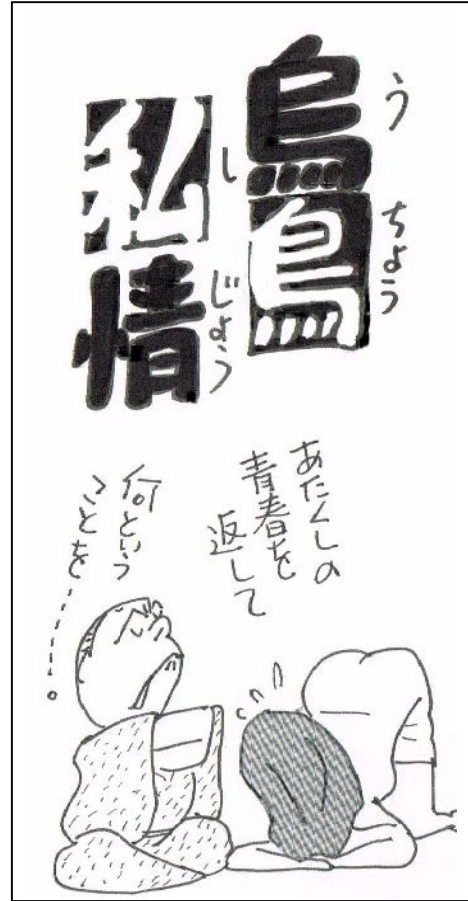 烏鳥
うちょう
私情
しじょう
あたくしの
青春を
返して
何という
ことを………。